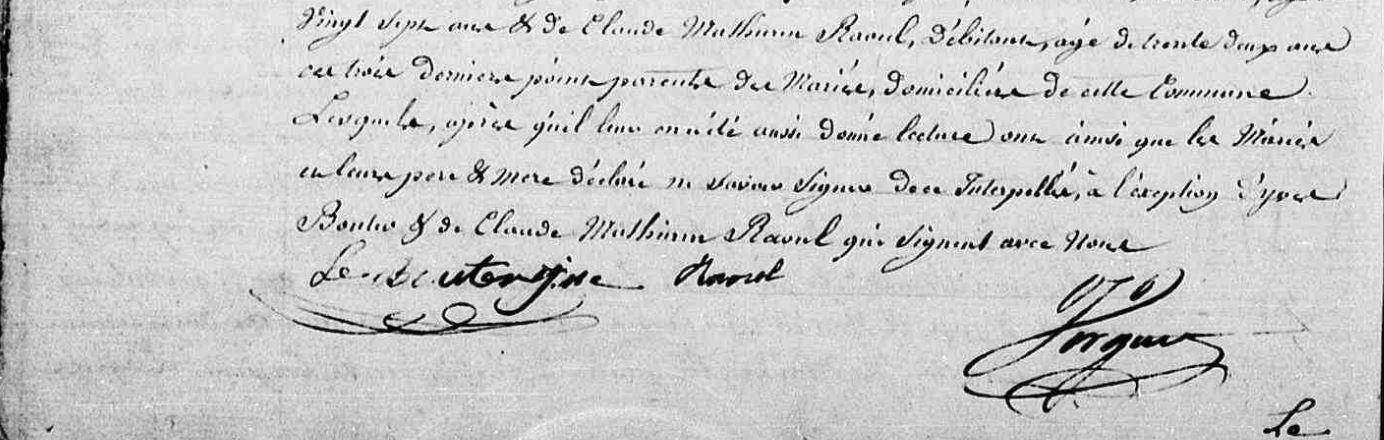 Vingt Sept ans & de Claude Mathurin Raoul, Débitant, agé de trente deux ans
ces trois derniers point parents des Mariés, domiciliés de cette Commune.
Lesquels, après qu'il leur en a été aussi donné lecture ont ainsi que les Mariés
et leurs pere & mere déclaré ne savoir signer de ce Interpellés, à l'éxception d'yves
Boutier & de Claude Mathurin Raoul qui signent avec Nous
Raoul
Le